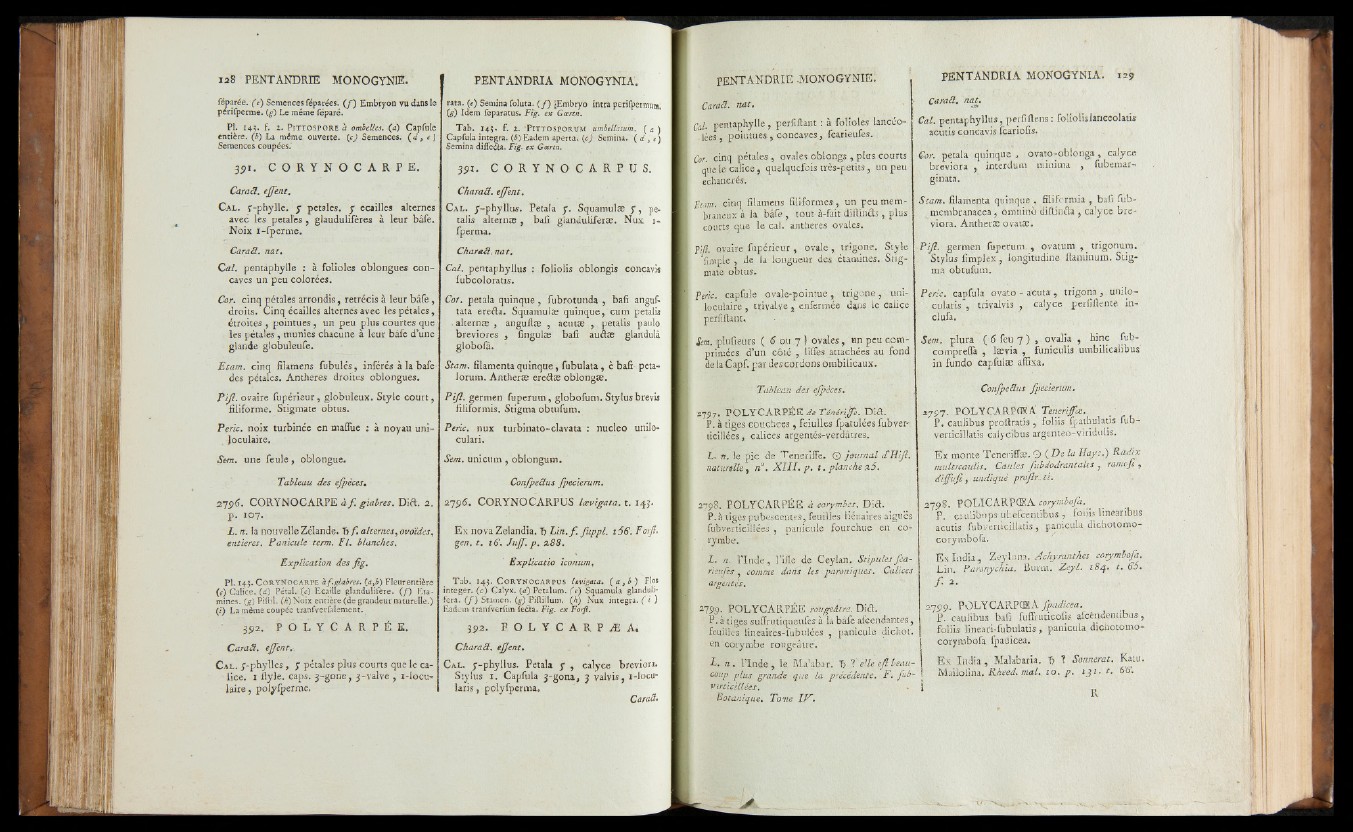 128 PENTANDRIE MONOGYNIE.
séparée. (e) Semences séparées. (f) Embryon vu dans le
périsperme. (g) Le même séparé.
Pl. 143. f. 2. PITTOSPORE à ombelles. (a) Capsule
entière. (b) La même ouverte. (c) Semences. (d, e)
Semences coupées.
391. CORYNOCARPE.
Caract. essent.
CAL. 5-phylle. 5 petales. 5 ecailles alternes
avec les petales, glandulifères à leur bâse.
Noix 1-sperme.
Caract. nat.
Cal. pentaphylle : à folioles oblongues con-
caves un peu colorées.
Cor. cinq pétales arrondis, retrécis à leur bâse,
droits. Cinq écailles alternes avec les pétales,
étroites, pointues, un peu plus courtes que
les pétales, munies chacune à leur bâse d'une
glande globuleuse.
Etam. cinq filamens subulés, insérés à la base
des pétales. Antheres droites oblongues.
Pist. ovaire supérieur, globuleux. Style court,
filiforme. Stigmate obtus.
Peric. noix turbinée en massue : à noyau uni-
loculaire.
Sem. une seule, oblongue.
Tableau des espèces.
2796. CORYNOCARPE à f. glabres. Dict. 2.
p. 107.
L. n. la nouvelle Zélande. ♄ f. alternes, ovoïdes,
entieres. Panicule term. Fl. blanches.
Explication des fig.
Pl. 143. CORYNOCARPE à f. glabres. (a, b) Fleur entière
(c) Calice. (d) Pétal. (e) Ecaille glandulifère. (f) Eta-
mines. (g) Pistil. (h) Noix entière (de grandeur naturelle.)
(i) La même coupée transversalement.
392. POLYCARPÉE.
Caract. essent.
CAL. 5-phylles, 5 pétales plus courts que le ca-
lice. 1 style. caps. 3-gone, 3-valve, 1-locu-
laire, polysperme.
PENTANDRIA MONOGYNIA.
rata. (e) Semina soluta. (f) Embryo intra perispermum.
(g) Idem separatus. Fig. ex Gærtn.
Tab. 143. f. 2. PITTOSPORUM umbellatum. (a)
Capsula integra. (b) Eadem aperta. (c) Semina. (d, e)
Semina dissecta. Fig. ex Gærtn.
391. CORYNOCARPUS.
Charact. essent.
CAL. 5-phyllus. Petala 5. Squamulæ 5, pe-
talis alternæ, basi glanduliferæ. Nux 1-
sperma.
Charact. nat.
Cal. pentaphyllus : foliolis oblongis concavis
subcoloratis.
Cor. petala quinque, subrotunda, basi angus-
tata erecta. Squamulæ quinque, cum petalis
alternæ, angustæ, acutæ, petalis paulo
breviores, singulæ basi auctæ glandulâ
globosâ.
Stam. filamenta quinque, subulata, è basi peta-
lorum. Antheræ erectæ oblongæ.
Pist. germen superum, globosum. Stylus brevis
filiformis. Stigma obtusum.
Peric. nux turbinato-clavata : nucleo unilo-
culari.
Sem. unicum, oblongum.
Conspectus specierum.
2796. CORYNOCARPUS lævigata. t. 143.
Ex nova Zelandia. ♄ Lin. f. suppl. 156. Forst.
gen. t. 16. Juss. p. 288.
Explicatio iconum.
Tab. 143. CORYNOCARPUS lævigata. (a, b) Flos
integer. (c) Calyx. (d) Petalum. (e) Squamula glanduli-
fera. (f) Stamen. (g) Pistillum. (h) Nux integra. (i)
Eadem transversim secta. Fig. ex Forst.
392. POLYCARPÆA.
Charact. essent.
CAL. 5-phyllus. Petala 5, calyce breviora.
Stylus 1. Capsula 3-gona, 3 valvis, 1-locu-
laris, polysperma.
Caract.
PENTANDRIE MONOGYNIE.
Caract. nat.
Cal. pentaphylle, persistant : à folioles lancéo-
lées, pointues, concaves, scarieuses.
Cor. cinq pétales, ovales oblongs, plus courts
que le calice, quelquefois très-petits, un peu
echancrés.
Etam. cinq filamens filiformes, un peu mem-
braneux à la bâse, tout à-fait distincts, plus
courts que le cal. antheres ovales.
Pist. ovaire supérieur, ovale, trigone. Style
simple, de la longueur des étamines. Stig-
mate obtus.
Peric. capsule ovale-pointue, trigone, uni-
loculaire, trivalve, enfermée dans le calice
persistant.
Sem. plusieurs (6 ou 7) ovales, un peu com-
primées d'un côté, lisses attachées au fond
de la Caps. par des cordons ombilicaux.
Tableau des espèces.
2797. POLYCARPÉE de Ténériffe. Dict.
P. à tiges couchées, feuilles spatulées subver-
ticillées, calices argentés-verdâtres.
L. n. le pic de Teneriffe. ⊙ journal d'Hist.
naturelle, n°. XIII. p. 1. planche 25.
2798. POLYCARPÉE à corymbes. Dict.
P. à tiges pubescentes, feuilles linéaires aiguës
subverticillées, panicule fourchue en co-
rymbe.
L. n. l'Inde, l'isle de Ceylan. Stipules sca-
rieuses, comme dans les paroniques. Calices
argentés.
2799. POLYCARPÉE rougeâtre. Dict.
P. à tiges suffrutiqueuses à la base ascendantes,
feuilles lineaires-subulées, panicule dichot.
en corymbe rougeâtre.
L. n. l'Inde, le Malabar. ♄ ? elle est beau-
coup plus grande que la précédente. F. sub-
verticillées.
Botanique. Tome IV.
PENTANDRIA MONOGYNIA. 129
Caract. nat.
Cal. pentaphyllus, persistens : foliolis lanceolatis
acutis concavis scariosis.
Cor. petala quinque, ovato-oblonga, calyce
breviora, interdum minima, submar-
ginata.
Stam. filamenta quinque, filiformia, basi sub-
membranacea, omninò distincta, calyce bre-
viora. Antheræ ovatæ.
Pist. germen superum, ovatum, trigonum.
Stylus simplex, longitudine staminum. Stig-
ma obtusum.
Peric. capsula ovato-acuta, trigona, unilo-
cularis, trivalvis, calyce persistente in-
clusa.
Sem. plura (6 seu 7), ovalia, hinc sub-
compressa, lævia, funiculis umbilicalibus
in fundo capsulæ affixa.
Conspectus specierum.
2797. POLYCARPŒA Teneriffæ.
P. caulibus prostratis, foliis spathulatis sub-
verticillatis calycibus argenteo-viridulis.
Ex monte Teneriffæ. ⊙ (De la Haye.) Radix
multicaulis. Caules subdodrantales, ramosi,
diffusi, undiquè prostrati.
2798. POLICARPŒA corymbosa.
P. caulibus pubescentibus, foliis linearibus
acutis subverticillatis, panicula dichotomo-
corymbosa.
Ex India, Zeylona. Achyranthes corymbosa.
Lin. Paronychia. Burm. Zeyl. 184. t. 65.
f. 2.
2799. POLYCARPŒA spadicea.
P. caulibus basi suffruticosis ascendentibus,
foliis lineari-subulatis, panicula dichotomo-
corymbosa spadicea.
Ex India, Malabaria. ♄ ? Sonnerat. Katu.
Mailosina. Rheed. mal. 10. p. 131. t. 66.
R